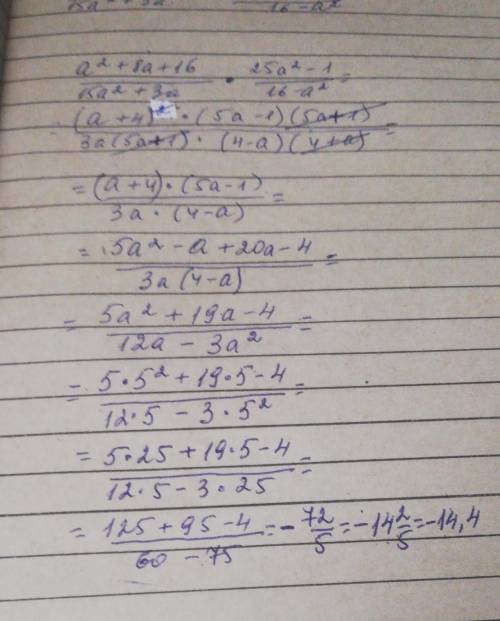 a² + 8a + 16 / 15a² + 3a · 25a² - 1 / 16 - a² =
= (a + 4)² · (5a - 1)(5a + 1) / 3a(5a + 1) · (4 - a)(4 + a) =
= (a + 4) · (5a - 1) / 3a · (4 - a) =
= 5a² - a + 20a - 4 / 3a(4 - a) =
= 5a² + 19a - 4 / 12a - 3a² =
= 5 · 5² + 19 · 5 - 4 / 12 · 5 - 3 · 5² =
= 5 · 25 + 19 · 5 - 4 / 12 · 5 - 3 · 25 =
= 125 + 95 - 4 / 60 - 75 = - 72/5 = -14 2/5 = -14,4